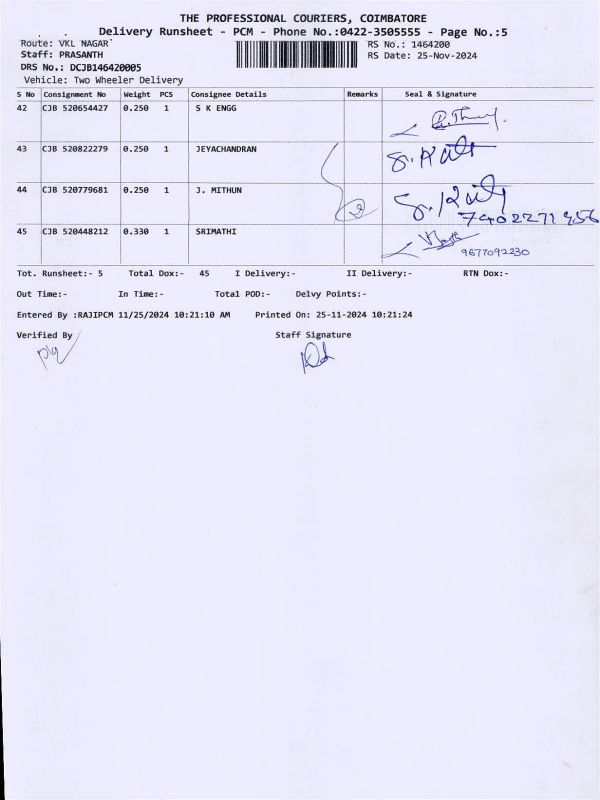 THE PROFESSIONAL COURIERS, COIMBATORE
Delivery Runsheet - PCM - Phone No.:0422-3505555 - Page No.:5
Route: VKL NAGAR
RS No.: 1464200
Staff: PRASANTH
RS Date: 25-Nov-2024
DRS No.: DCJB146420005
Vehicle: Two Wheeler Delivery
S No Consignment No Weight PCS Consignee Details Remarks Seal & Signature
42 CJB 520654427 0.250 1 S K ENGG
43 CJB 520822279 0.250 1 JEYACHANDRAN
44 CJB 520779681 0.250 1 J. MITHUN
45 CJB 520448212 0.330 1 SRIMATHI
9677092230
Tot. Runsheet:- 5 Total Dox:- 45 I Delivery:- II Delivery:- RTN Dox:-
Out Time:- In Time:- Total POD:- Delvy Points:-
Entered By :RAJIPCM 11/25/2024 10:21:10 AM Printed On: 25-11-2024 10:21:24
Verified By Staff Signature